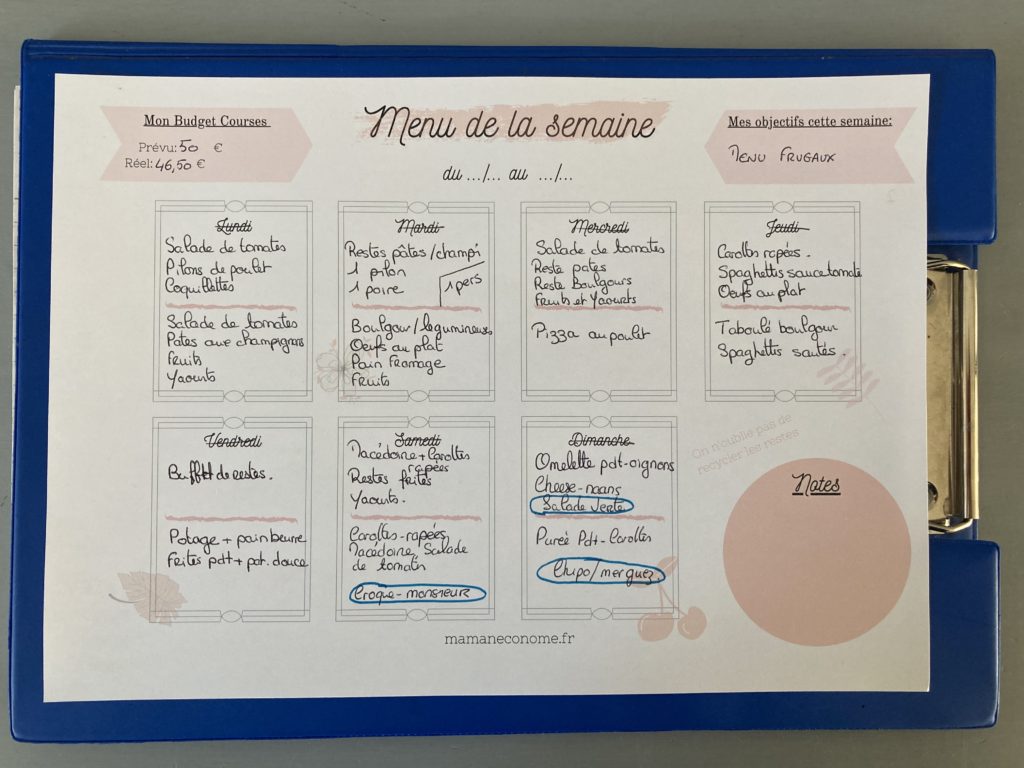 Menu de la semaine
Mon Budget Courses
Prévu: 50 €
Réel: 46,50 €
Mes objectifs cette semaine:
MENU FRUGAUX
du .../... au .../...
Lundi
Salade de tomates
Pilons de poulet
Coquillettes
Salade de tomates
Pates aux champignons
Fruits
Yaourts
Mardi
Restes pâtes/champi
1 pilon
1 poire
1 pers
Boulgour/legumineuses
Oeufs au plat
Pain Fromage
Fruits
Mercredi
Salade de tomates
Reste pates
Reste Boulgours
Fruits et Yaourts
Pizza au poulet
Jeudi
Carottes rapées.
Spaghettis sauce tomate
Oeufs au plat
Taboulé boulgour
Spaghettis sautés.
Vendredi
Buffet de restes.
Potage + pain beurre
Frites pdt + pat. douce
Samedi
Macédoine + Carottes
rapées
Restes frites
Yaourts.
Carottes-rapées,
Macédoine, Salade
de tomates
Croque-monsieur
Dimanche
Omelette pdt-oignons
Cheese-naans
Salade verte
Purée Pdt-Carottes
Chipo/merguez
On n'oublie pas de
recycler les restes
Notes
mamaneconome.fr